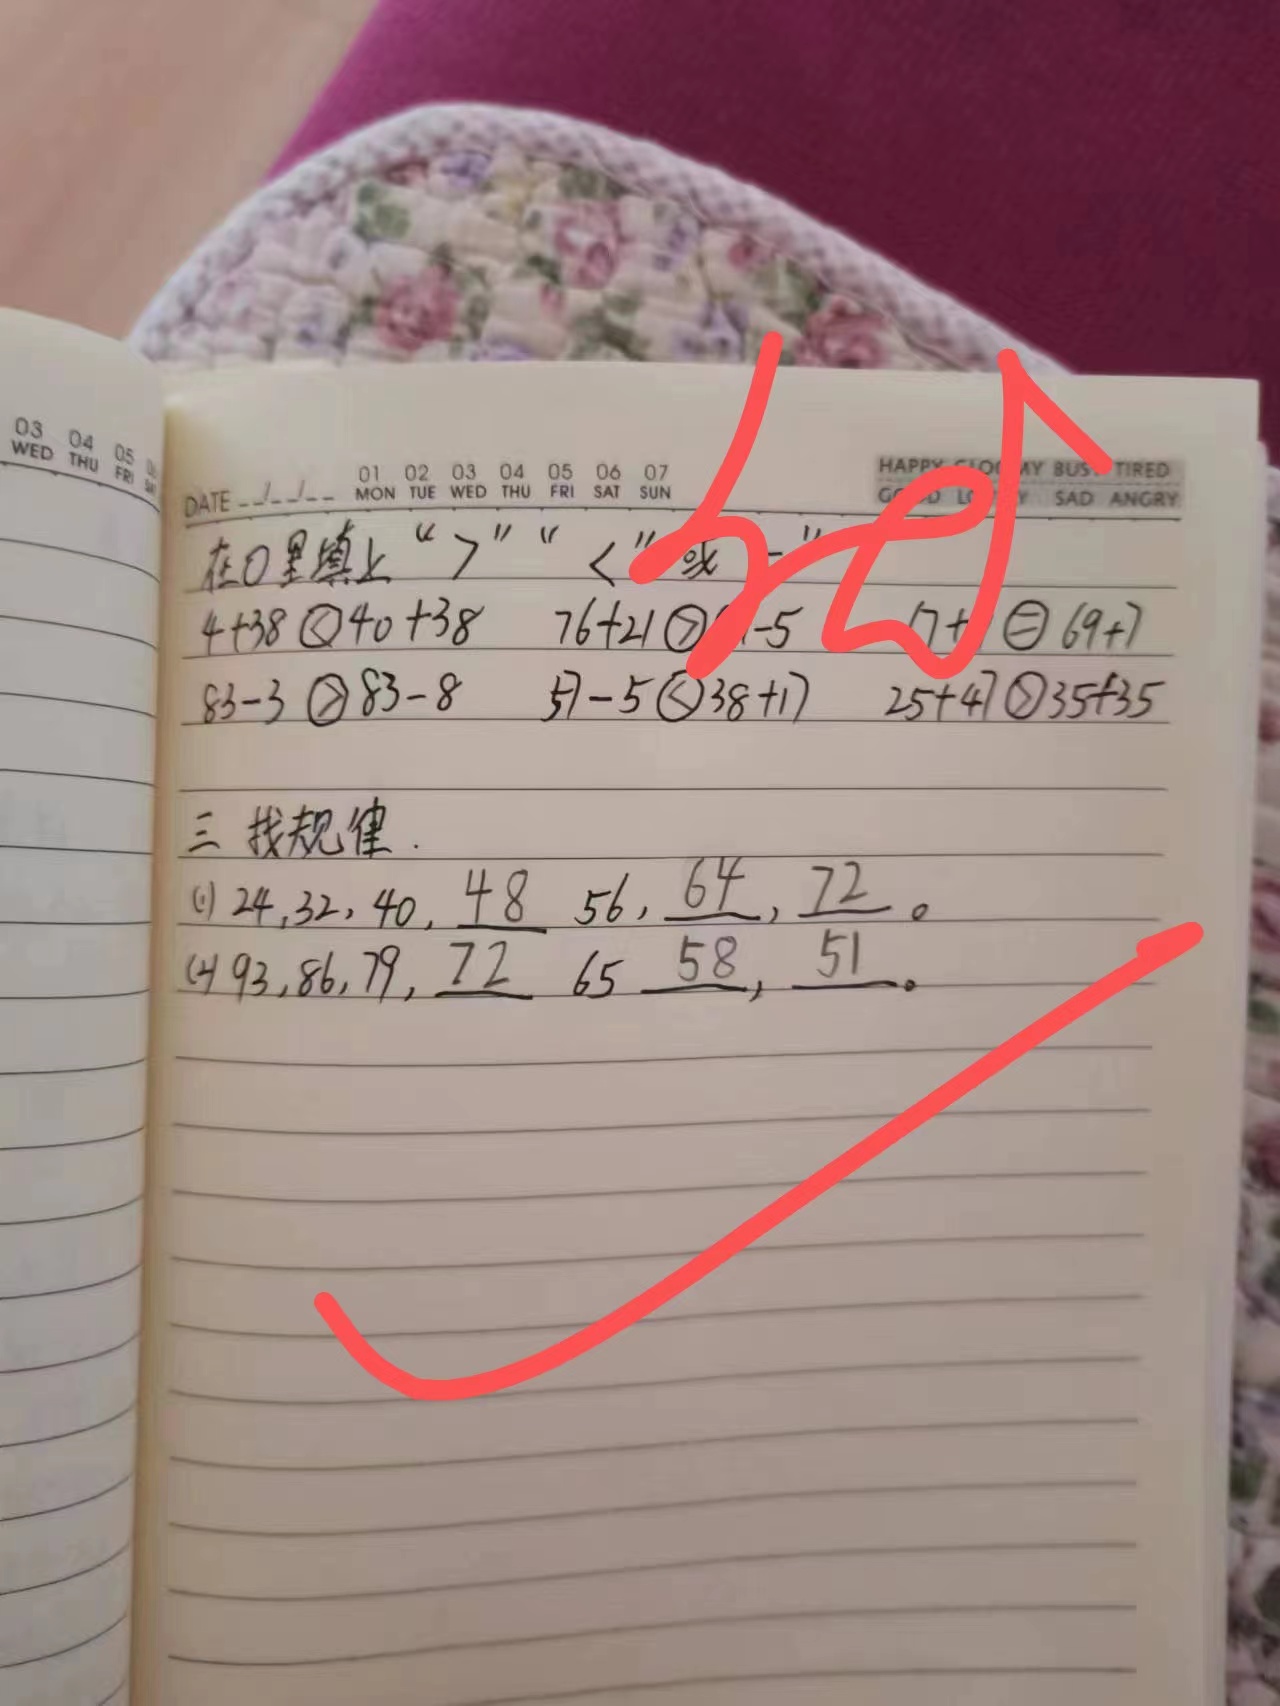 03 04 05
WED THU FRI
01 02 03 04 05 06 07
DATE MON TUE WED THU FRI SAT SUN
HAPPY GLOOMY BUSY TIRED
GOOD SAD ANGRY
在○里填上 “>” “<” 或 “=”
4+38 < 40+38 76+21 > -5 17+ = 69+7
83-3 > 83-8 57-5 < 38+17 25+47 > 35+35
三 找规律.
(1) 24,32,40,48 56,64,72。
(2) 93,86,79,72 65 58,51。